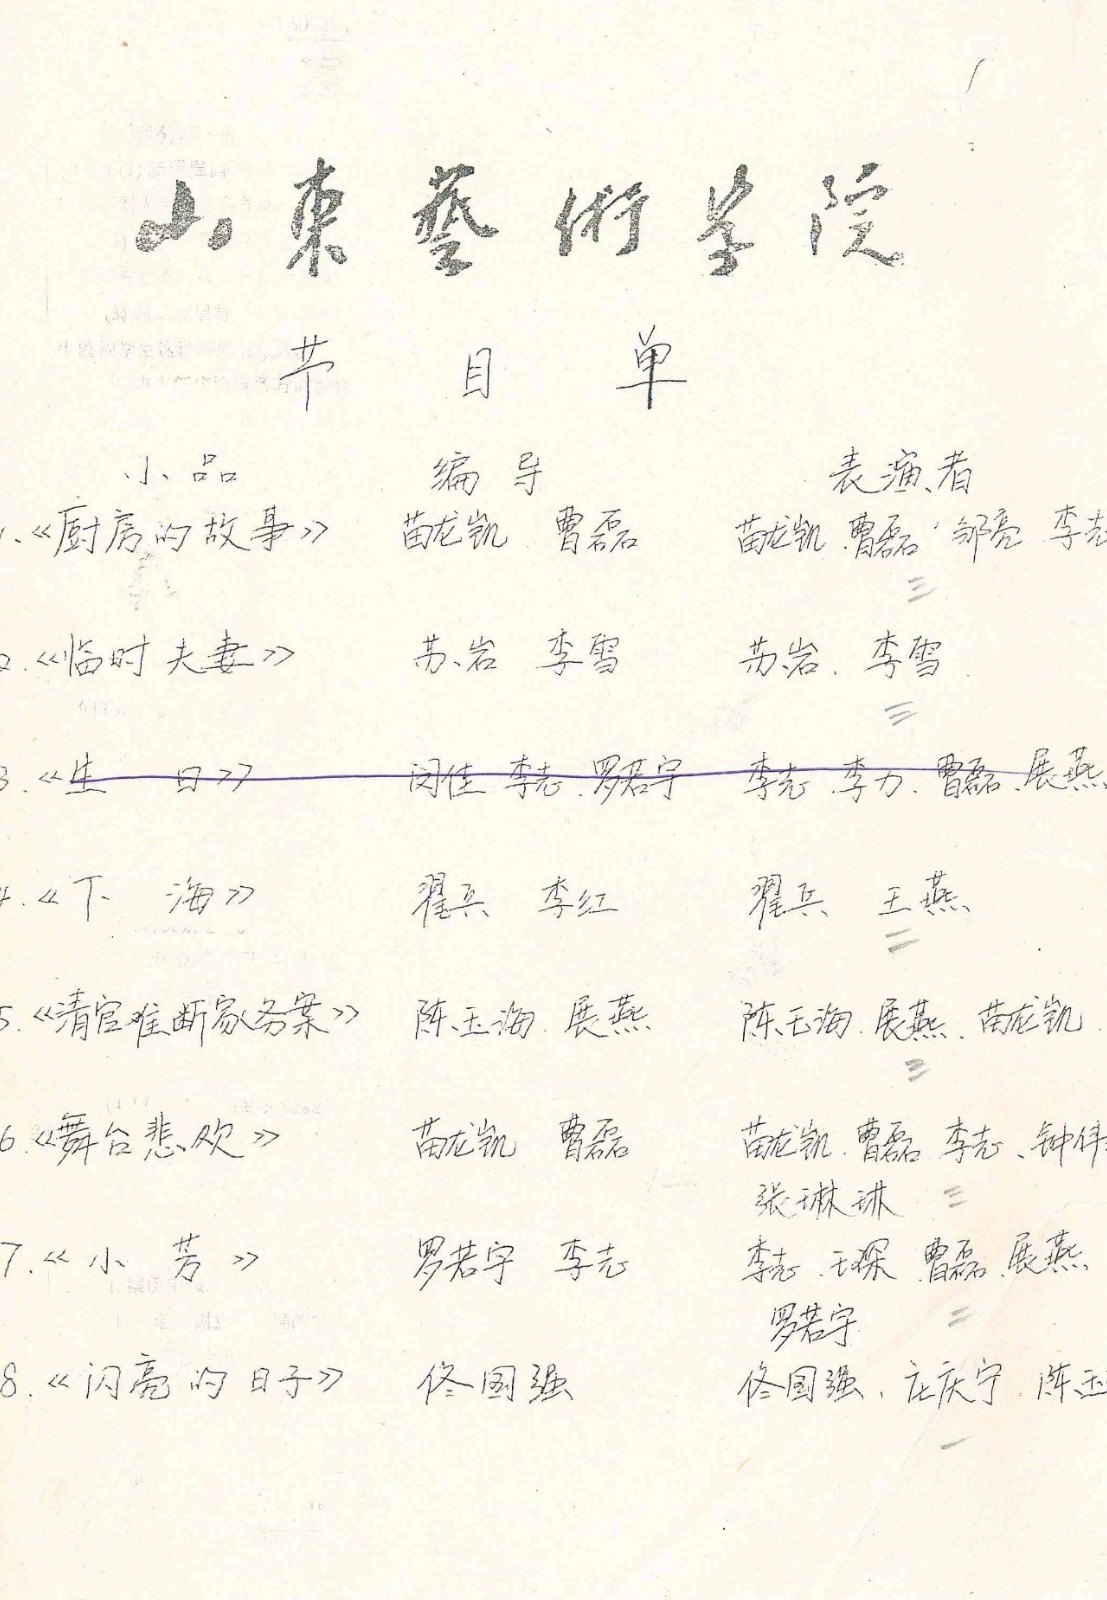 山東藝術学院
节目单
小品 编导 表演者
1.《厨房的故事》 苗龙凯 曹磊 苗龙凯.曹磊.邹亮 李志
三
2.《临时夫妻》 苏岩 李雪 苏岩.李雪.
三
3.《生日》 闵佳 李志.罗若宇 李志.李力.曹磊.展燕.
4.《下海》 翟兵 李红 翟兵 王燕
二
5.《清官难断家务案》 陈玉海.展燕 陈玉海.展燕.苗龙凯.
三
6.《舞台悲欢》 苗龙凯 曹磊 苗龙凯.曹磊 李志、钟伟
张琳琳 三
7.《小芳》 罗若宇 李志 李志.王琛 曹磊.展燕.
罗若宇 二
8.《闪亮的日子》 佟国强 佟国强.庄庆宁.陈玉
一